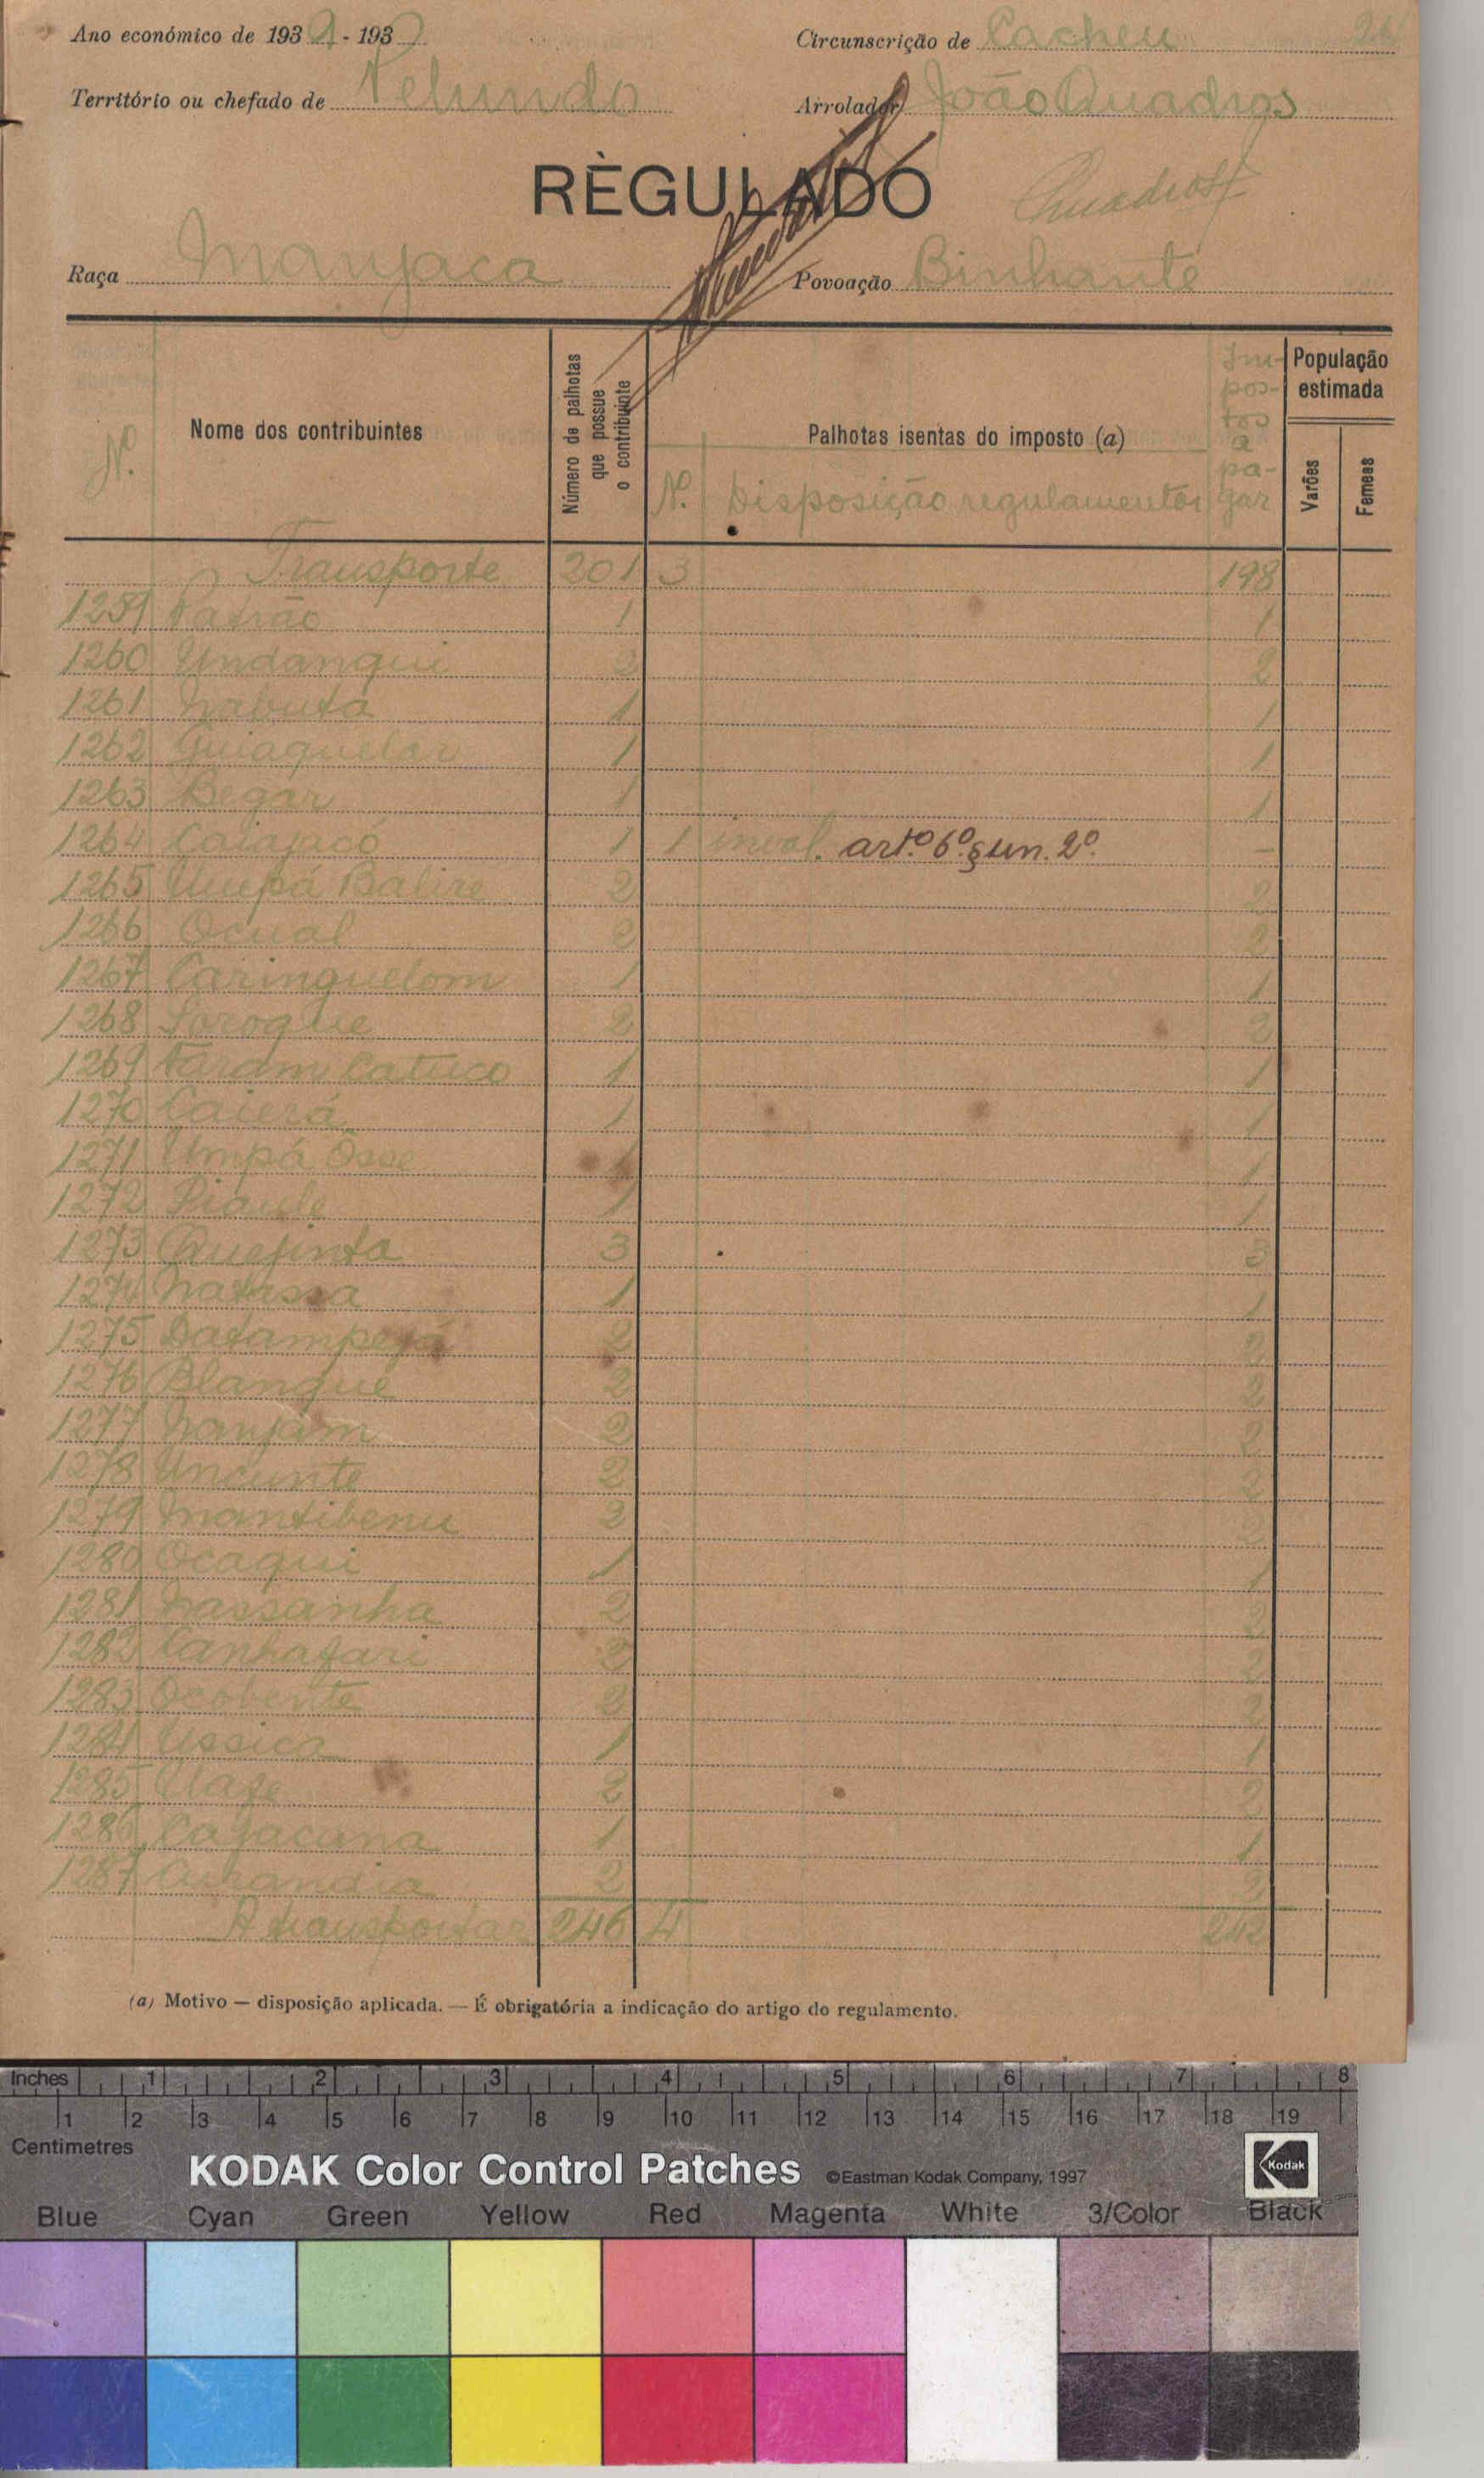 Ano económico de 193 - 193
Circunscrição de Cacheu
Território ou chefado de Pelundo
Arrolador João Quadros
RÈGULADO
Quadros
Raça Manjaca
Povoação Binhante
N.º
Nome dos contribuintes
Número de palhotas que possue o contribuinte
Palhotas isentas do imposto (a)
N.º Disposição regulamentar
Impostos a pagar
População estimada
Varões
Femeas
Transporte 201 3 198
1259 Patrão 1 1
1260 Undanqui 2 2
1261 Nabuta 1 1
1262 Quiaquelar 1 1
1263 Begar 1 1
1264 Caiajacó 1 1 inval. artº 6º § un. 2º. -
1265 Umpá Balire 2 2
1266 Ocual 2 2
1267 Caringuelom 1 1
1268 Faroque 2 2
1269 Faram Catuco 1 1
1270 Caierá 1 1
1271 Umpá Osse 1 1
1272 Piaule 1 1
1273 Quefinta 3 3
1274 Natissa 1 1
1275 2 2
1276 Blanque 2 2
1277 Nanjam 2 2
1278 Uncunte 2 2
1279 Mantibenu 2 2
1280 Ocaqui 1 1
1281 Nassanha 2 2
1282 Canhafari 2 2
1283 Ocobente 2 2
1284 Ussica 1 1
1285 Uafe 2 2
1286 Cajacana 1 1
1287 2 2
A transportar 246 4 242
(a) Motivo — disposição aplicada. — É obrigatória a indicação do artigo do regulamento.
Inches 1 2 3 4 5 6 7 8
1 2 3 4 5 6 7 8 9 10 11 12 13 14 15 16 17 18 19
Centimetres
KODAK Color Control Patches ©Eastman Kodak Company, 1997 Kodak
Blue Cyan Green Yellow Red Magenta White 3/Color Black